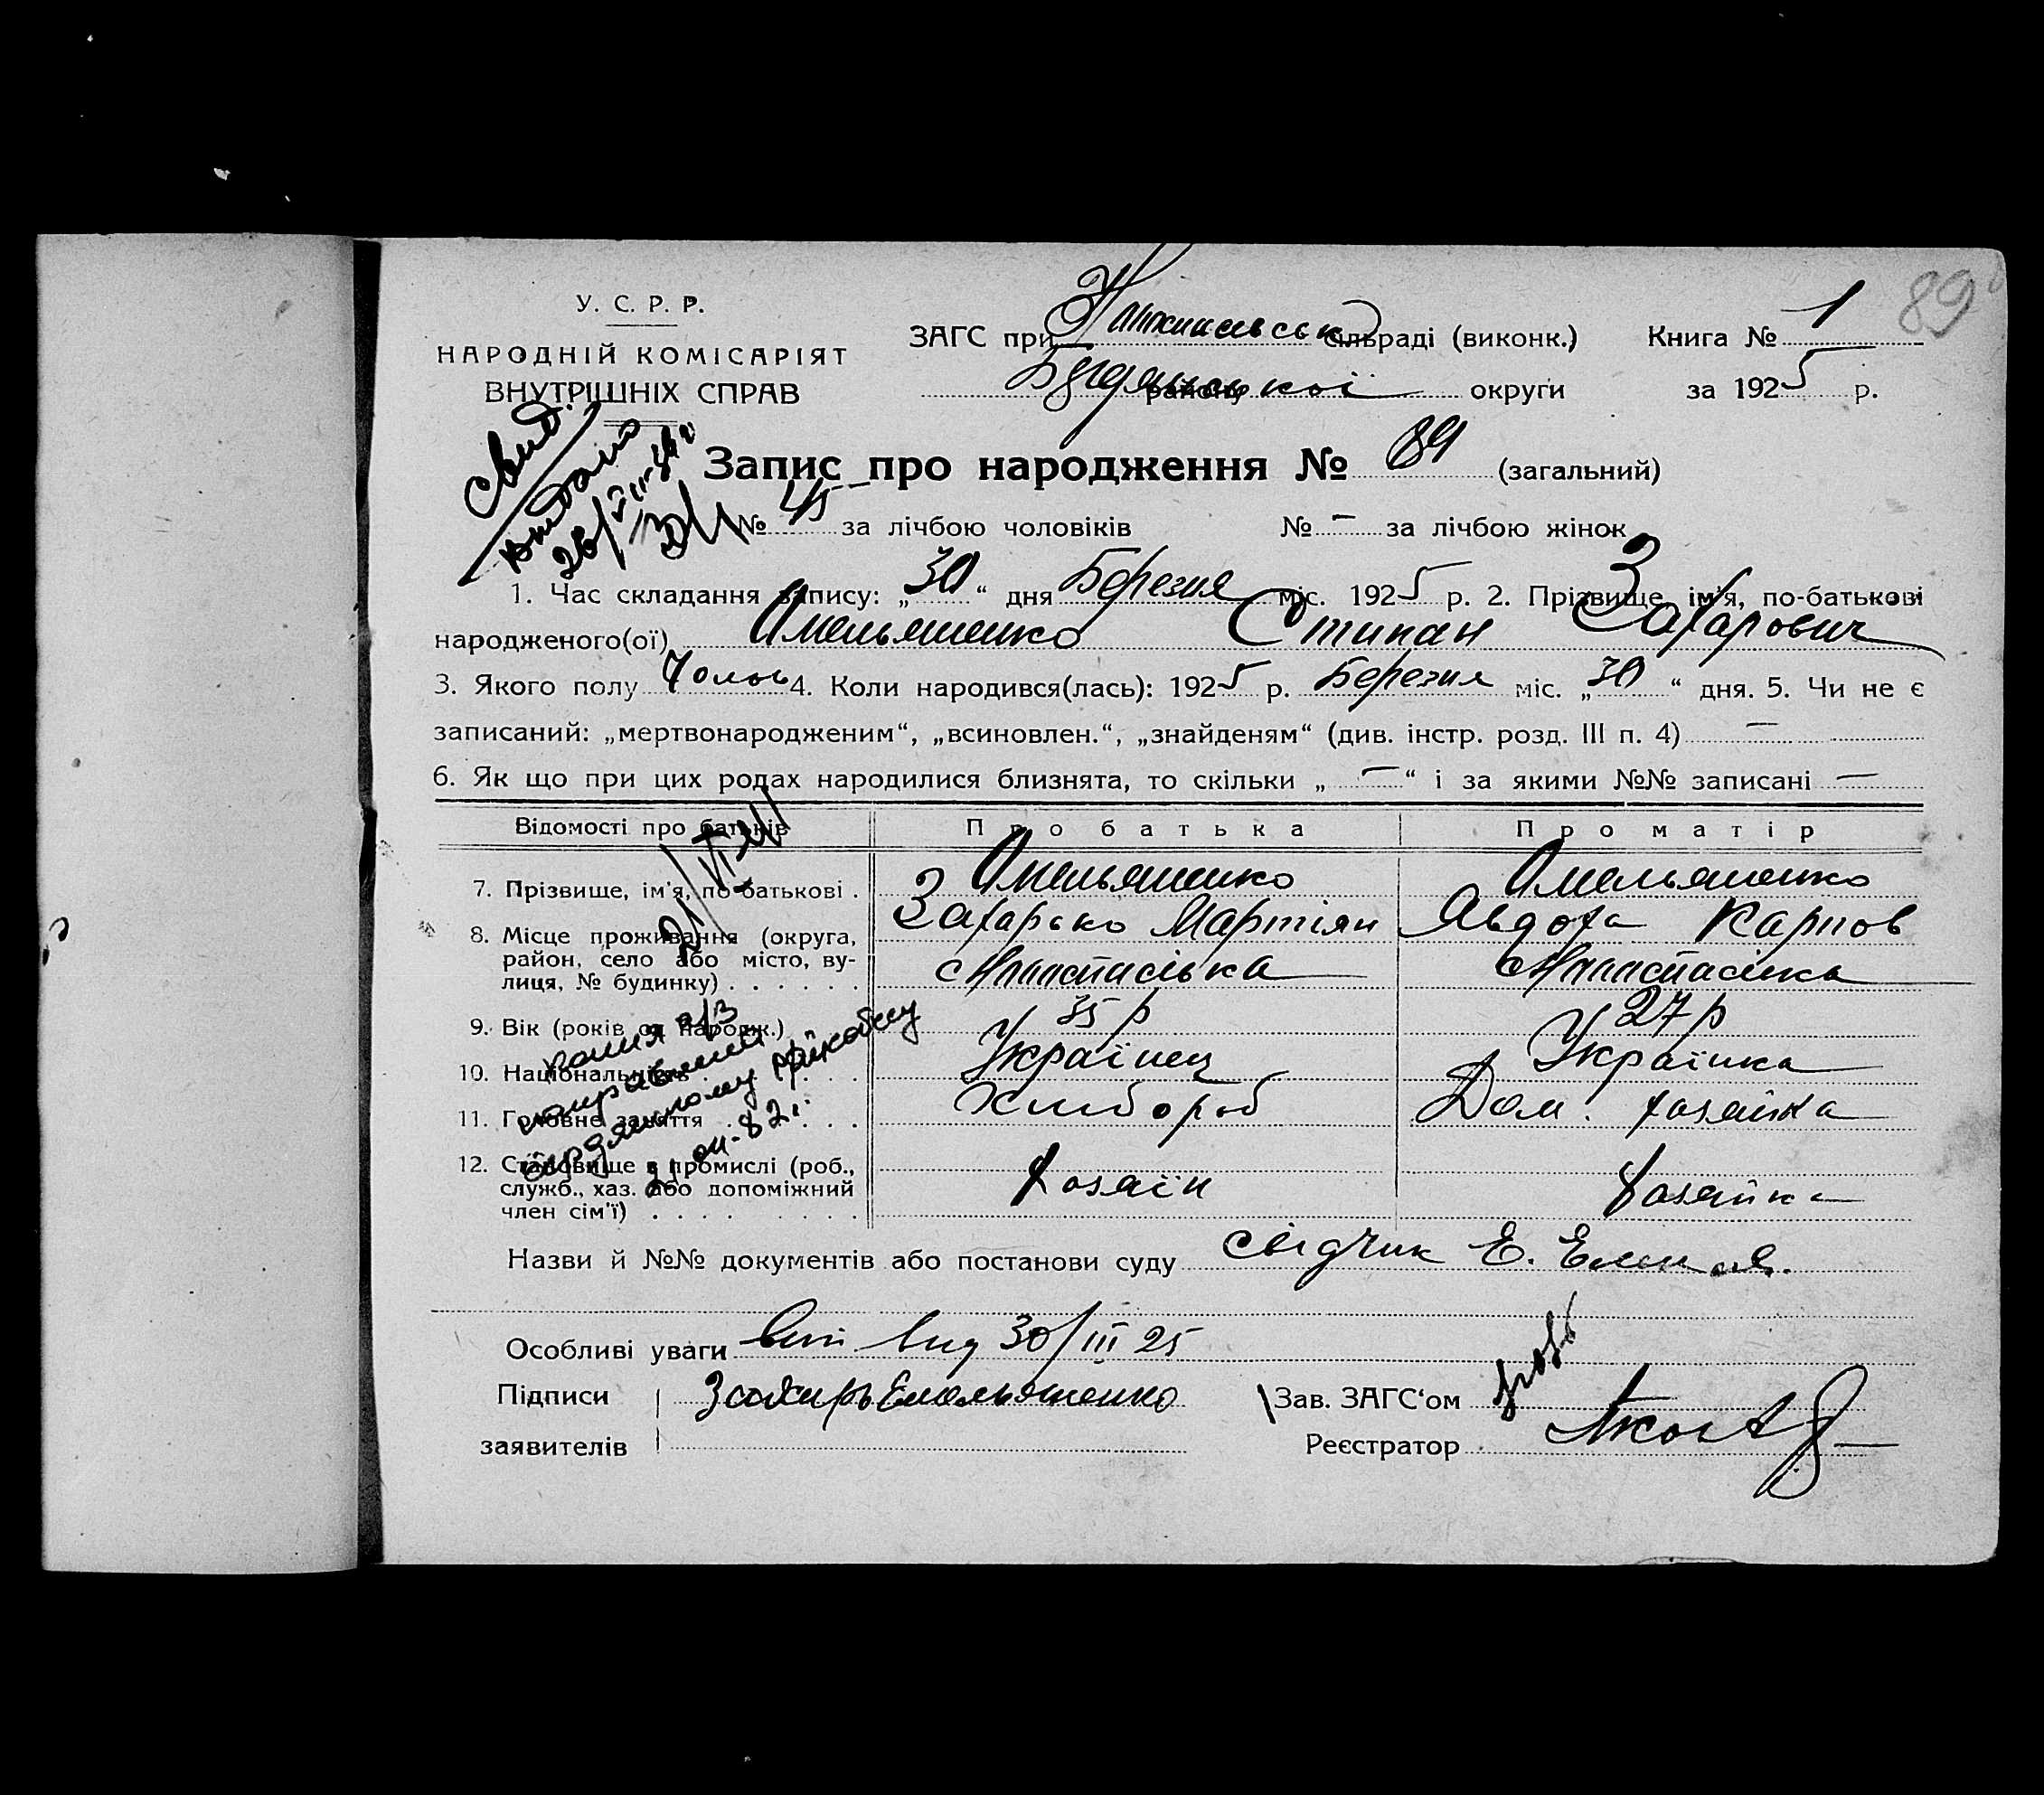 89
У. С. Р. Р.
НАРОДНІЙ КОМІСАРІЯТ
ВНУТРІШНІХ СПРАВ
ЗАГС при сільраді (виконк.) Книга № 1
району округи за 1925 р.
Свид.
выдано
Запис про народження № 89 (загальний)
№ 45 за лічбою чоловіків № — за лічбою жінок
1. Час складання запису: „30“ дня Березня міс. 1925 р. 2. Прізвище, ім'я, по-батькові
народженого(ої) Омельяненко Стипан Захарович
3. Якого полу Чолов 4. Коли народився(лась): 1925 р. Березня міс. „30“ дня. 5. Чи не є
записаний: „мертвонародженим“, „всиновлен.“, „знайденям“ (див. інстр. розд. III п. 4) —
6. Як що при цих родах народилися близнята, то скільки „ — “ і за якими №№ записані —
Відомості про батьків Про батька Про матір
7. Прізвище, ім'я, по-батькові . Омельяненко Омельяненко
Захарько Мартіян Явдоха Карпов
8. Місце проживання (округа,
район, село або місто, ву-
лиця, № будинку) . . . . . .
9. Вік (років од народж.) 35 р 27 р
10. Національність . . . . Українец Українка
11. Головне заняття . . . . Хлибороб Дом. хозяйка
12. Становище в промислі (роб.,
служб., хаз. або допоміжний
член сім'ї) . . . . Хозяїн Хозяйка
копия а/з
направлена
Назви й №№ документів або постанови суду свідчик Е.
Особливі уваги 30/III 25
Підписи Захирь Емельяненко Зав. ЗАГС‘ом
заявителів Реєстратор